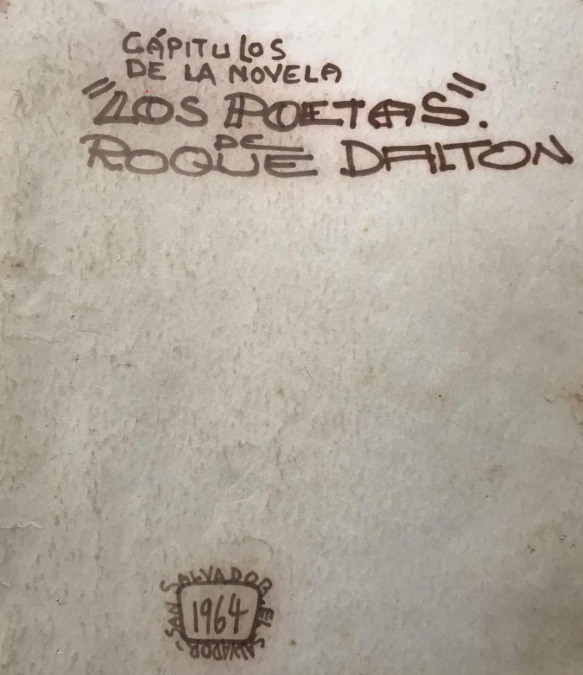 CÁPITULOS
DE LA NOVELA
"LOS POETAS".
DE
ROQUE DALTON
SAN SALVADOR, EL SALVADOR.
1964